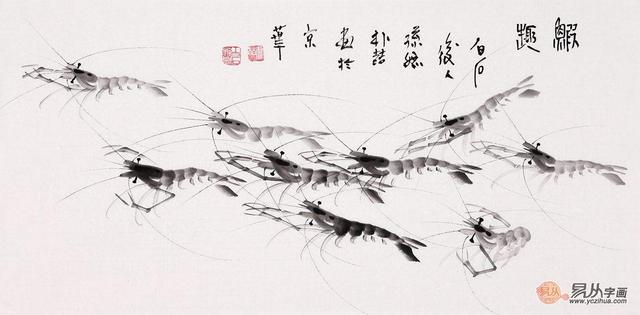 鰕
趣
白石
後人
孫媳
朴喆
畫於
京
華
易从
易从字画
www.yczihua.com